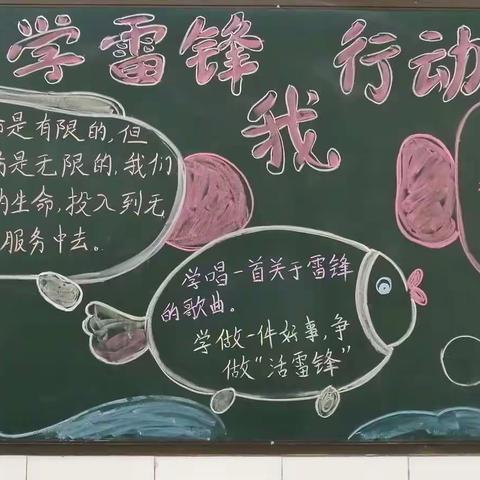 学雷锋 我 行动
命是有限的,但
务是无限的,我们
的生命,投入到无
服务中去。
学唱一首关于雷锋
的歌曲。
学做一件好事,争
做“活雷锋”